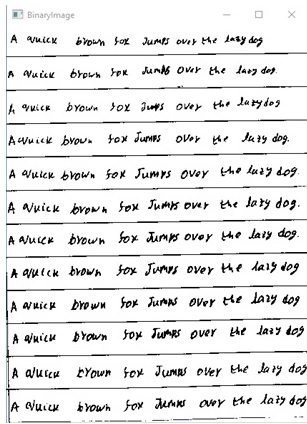 BinaryImage
A quick brown fox Jumps over the lazy dog
A quick brown fox Jumps over the lazy dog.
A quick brown fox Jumps over the lazy dog
A quick brown fox Jumps over the lazy dog.
A quick brown fox Jumps over the lazy dog.
A quick brown fox Jumps over the lazy dog.
A quick brown fox Jumps over the lazy dog.
A quick brown fox Jumps over the lazy dog
A quick brown fox Jumps over the lazy dog
A quick brown fox Jumps over the lazy dog
A quick brown fox Jumps over the lazy dog
A quick brown fox Jumps over the lazy dog.